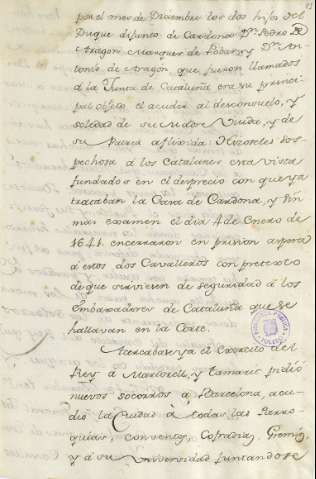 por el mes de Diciembre los dos hijos del
Duque difunto de Cardona Dn. Pedro de
Aragon Marques de Pobar, y Dn. An-
tonio de Aragon, que fueron llamados
á la Junta de Cataluña era su princi-
pal objeto el acudir al desconsuelo, y
soledad de su Madre Viuda, y de
su Nuera aflixida: Hizoseles sos-
pechosa á los Catalanes esta vista
fundados en el desprecio con que ya
trataban la Casa de Cardona, y sin
mas examen el dia 4 de Enero de
1641. encerraron en prision aspera
á estos dos Cavalleros con pretexto
de que sirviesen de seguridad á los
Embaxadores de Cataluña que se
hallavan en la Corte.
Acercabase ya el Exercito del
Rey á Martorell, y Tamarit pidió
nuevos socorros á Barcelona, acu-
dió la Ciudad á todas las Parro-
quias, conventos, Cofradias, Gremios
y á su Universidad juntandose
BIBLIOTECA PUBLICA
TOLEDO